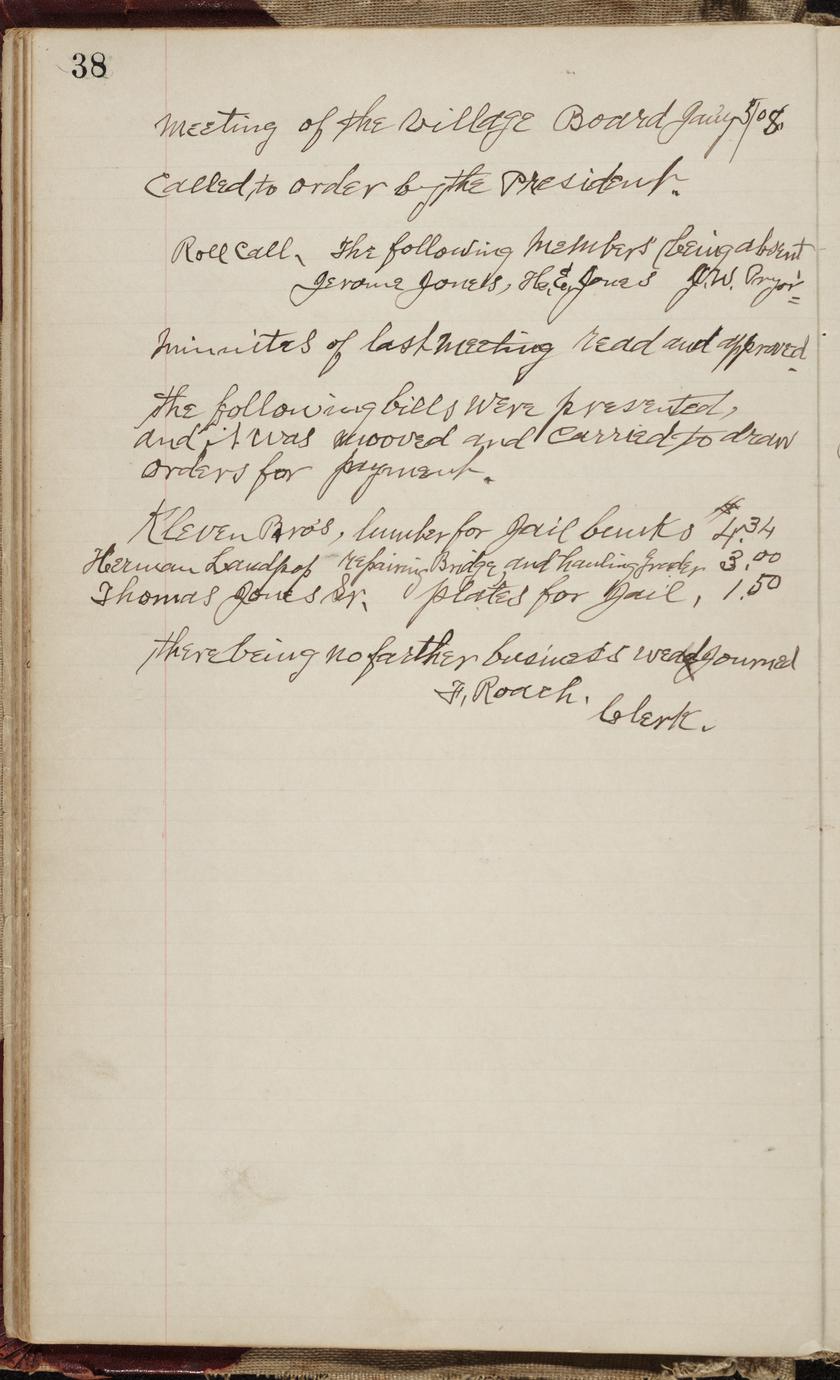 38
Meeting of the Village Board Jany 5/08.
Called to order by the President.
Roll Call, The following Members being absent
Jerome Jones, H. E. Jones J. W. Pryor
Minnites of last Meeting read and approved
the following bills were presented,
and it was mooved and carried to draw
orders for payment.
Kleven Bro's, lumber for Jail bunks $4.34
Herman repairing Bridge and hauling Grader 3.00
Thomas Jones Sr. plates for Jail, 1.50
there being no farther business we adjourned
F. Roach.
Clerk.